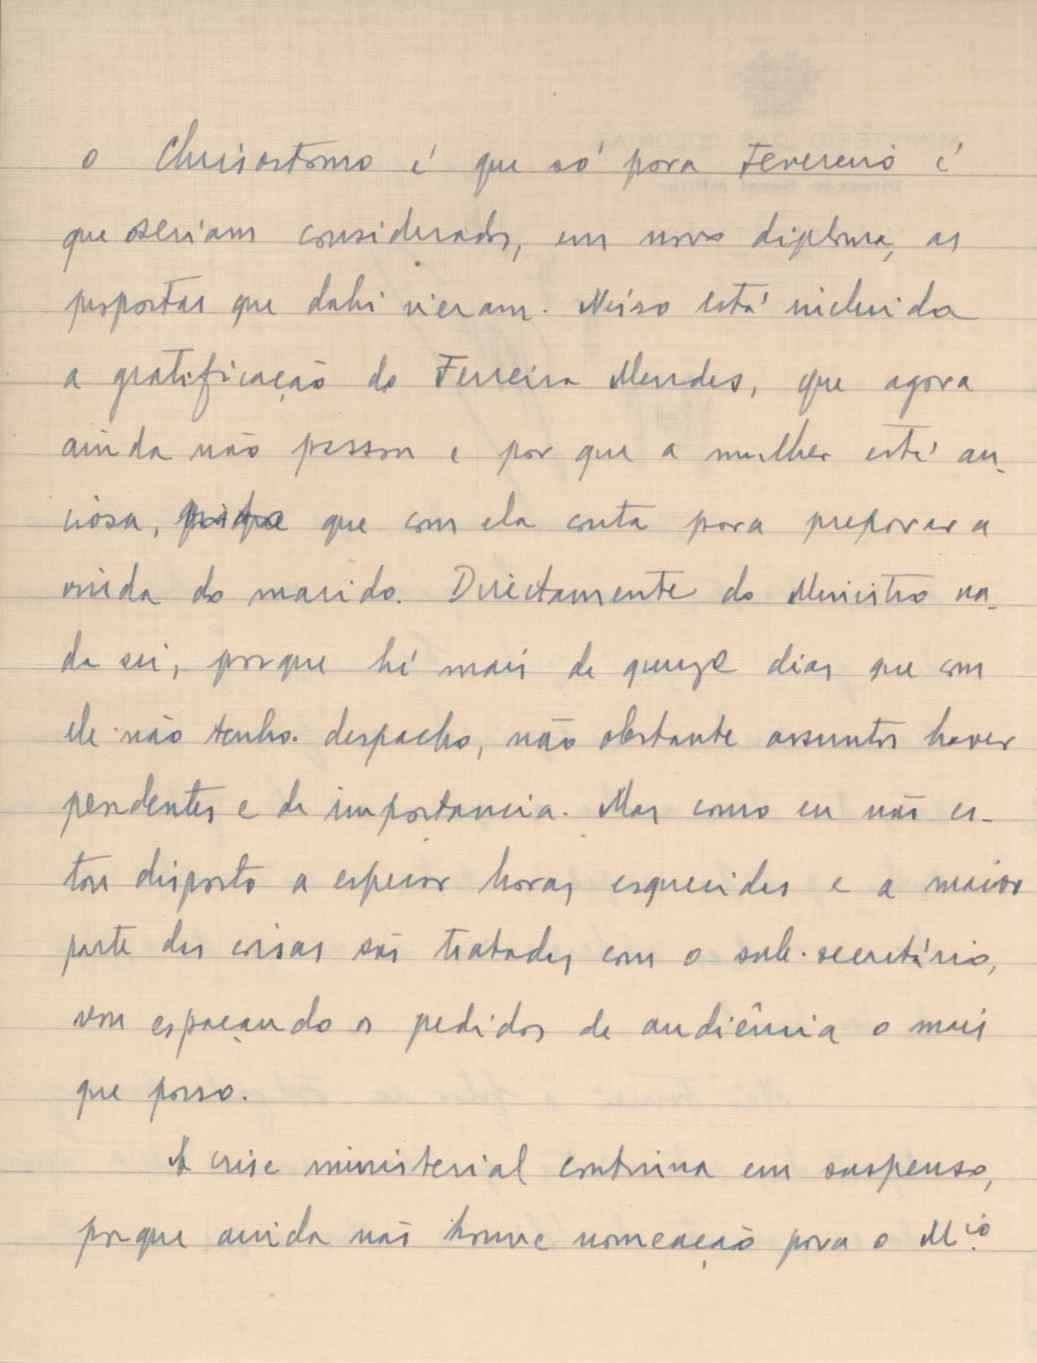 o Chrisostomo é que só para Fevereiro é
que seriam considerados, em novo diploma, as
propostas que dahi vieram. Nisso está incluida
a gratificação do Ferreira Mendes, que agora
ainda não passou e por que a mulher está an-
ciosa, que com ela conta para preparar a
vinda do marido. Directamente do Ministro na-
da sei, porque há mais de quinze dias que com
ele não tenho despacho, não obstante assuntos haver
pendentes e de importancia. Mas como eu não es-
tou disposto a esperar horas esquecidas e a maior
parte das coisas são tratadas com o sub-secretário,
vou espaçando os pedidos de audiência o mais
que posso.
A crise ministerial continua em suspenso,
porque ainda não houve nomeação para o M.io